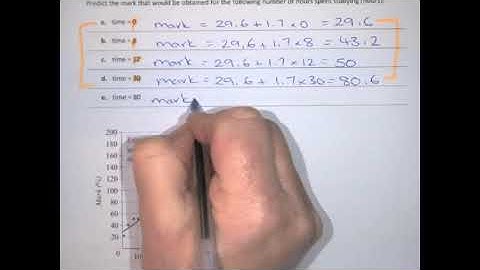 Predict the mark that would be obtained for the following number of hours spent studying (hours):
a. time = 0 mark = 29.6 + 1.7 × 0 = 29.6
b. time = 8 mark = 29.6 + 1.7 × 8 = 43.2
c. time = 12 mark = 29.6 + 1.7 × 12 = 50
d. time = 30 mark = 29.6 + 1.7 × 30 = 80.6
e. time = 80 mark
200
180
160
140
120
100
80
60
40
20
Mark (%)
10